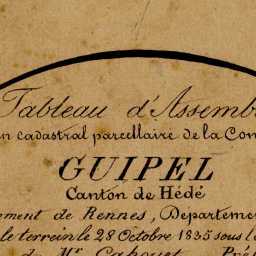 Tableau d'Assemb
n cadastral parcellaire de la Con
GUIPEL
Canton de Hédé
ement de Rennes, Départeme
le terrein le 28 Octobre 1835 sous l
de Mr Cahouet, Pré